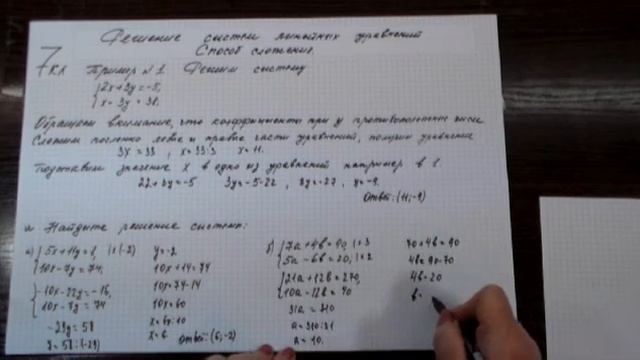 Решение систем линейных уравнений
Способ сложения.
7 кл Пример №1 Решим систему
{2x+3y=-5,
{x-3y=38;
Обращаем внимание, что коэффициенты при y противоположные числа
Сложим почленно левые и правые части уравнений, получим уравнение
3x=33, x=33:3 x=11.
Подставим значение x в одно из уравнений например в 1.
22+3y=-5 3y=-5-22, 3y=-27, y=-9.
Ответ: (11;-9)
Найдите решение системы:
а) {5x+11y=8, |×(-2)
{10x-7y=74;
{-10x-22y=-16,
{10x-7y=74
-29y=58
y=58:(-29)
y=-2
10x+14=74
10x=74-14
10x=60
x=60:10
x=6
Ответ: (6;-2)
б) {7a+4b=90, |×3
{5a-6b=20; |×2
{21a+12b=270,
{10a-12b=40
31a=310
a=310:31
a=10.
70+4b=90
4b=90-70
4b=20
b=